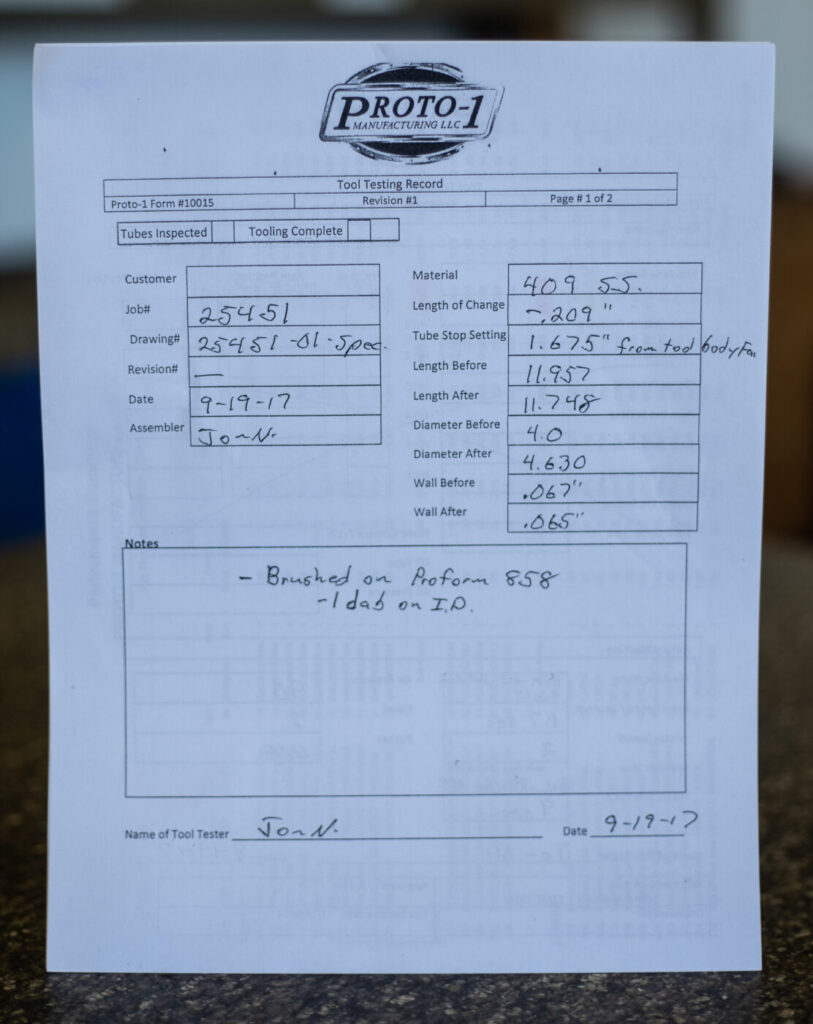 PROTO-1
MANUFACTURING LLC
Tool Testing Record
Proto-1 Form #10015 Revision #1 Page # 1 of 2
Tubes Inspected Tooling Complete
Customer
Job# 25451
Drawing# 25451-01-Spec.
Revision# —
Date 9-19-17
Assembler Jon N.
Material 409 S.S.
Length of Change -.209"
Tube Stop Setting 1.675" from tool body
Length Before 11.957
Length After 11.748
Diameter Before 4.0
Diameter After 4.630
Wall Before .067"
Wall After .065"
Notes
- Brushed on Proform 858
-1 dab on I.D.
Name of Tool Tester Jon N. Date 9-19-17